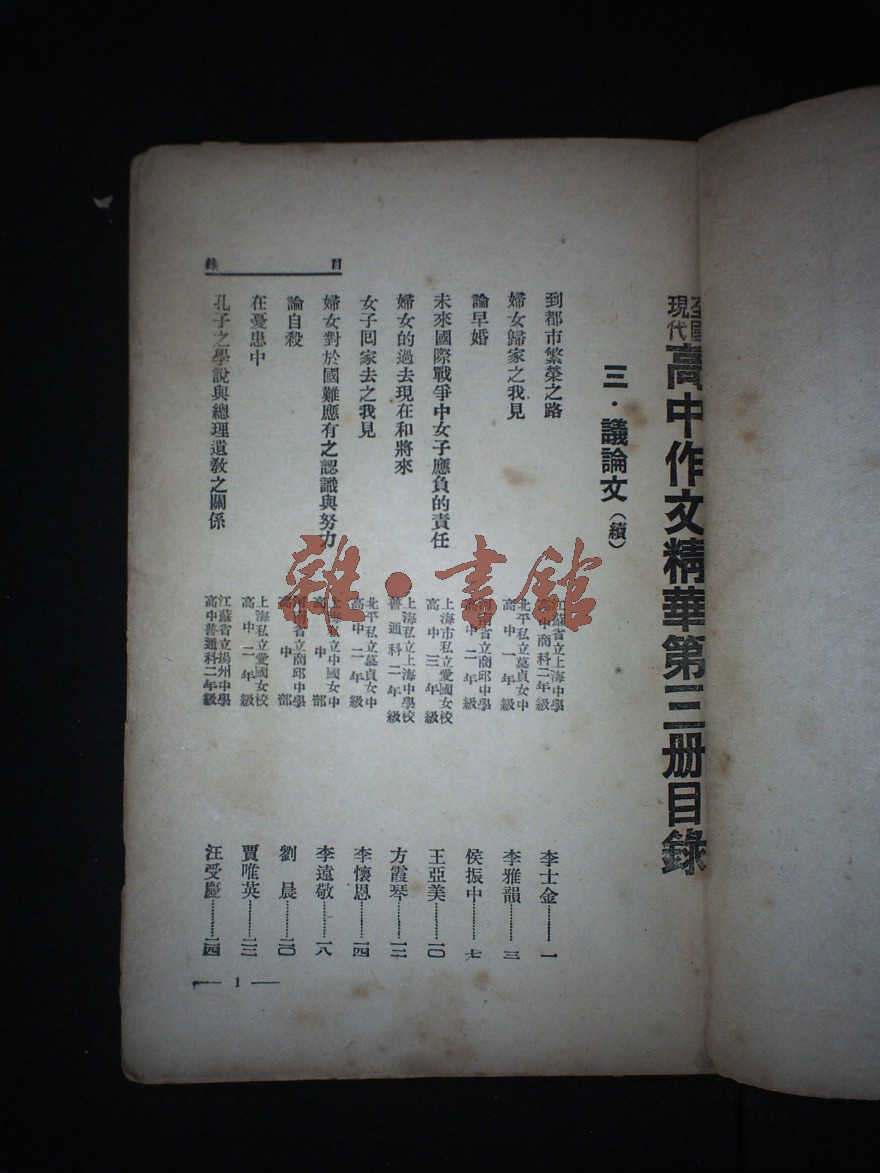 全國現代高中作文精華第三册目錄
三・議論文（續）
到都市繁榮之路 江蘇省立上海中學高中商科二年級 李士金………一
婦女歸家之我見 北平私立慕貞女中高中一年級 李雅韻………三
論早婚 河南省立商邱中學高中二年級 侯振中………七
未來國際戰爭中女子應負的責任 上海市私立愛國女校高中三年級 王亞美………一〇
婦女的過去現在和將來 上海私立上海中學校普通科二年級 方霞琴………一二
女子回家去之我見 北平私立慕貞女中高中二年級 李懷恩………一四
婦女對於國難應有之認識與努力 上海私立中國女中高中部 李遠敬………一八
論自殺 河南省立商邱中學高中部 劉晨………二〇
在憂患中 上海私立愛國女校高中二年級 賈唯英………二二
孔子之學說與總理遺教之關係 江蘇省立揚州中學高中普通科二年級 汪受慶………二四
目錄
— 1 —
雜・書館